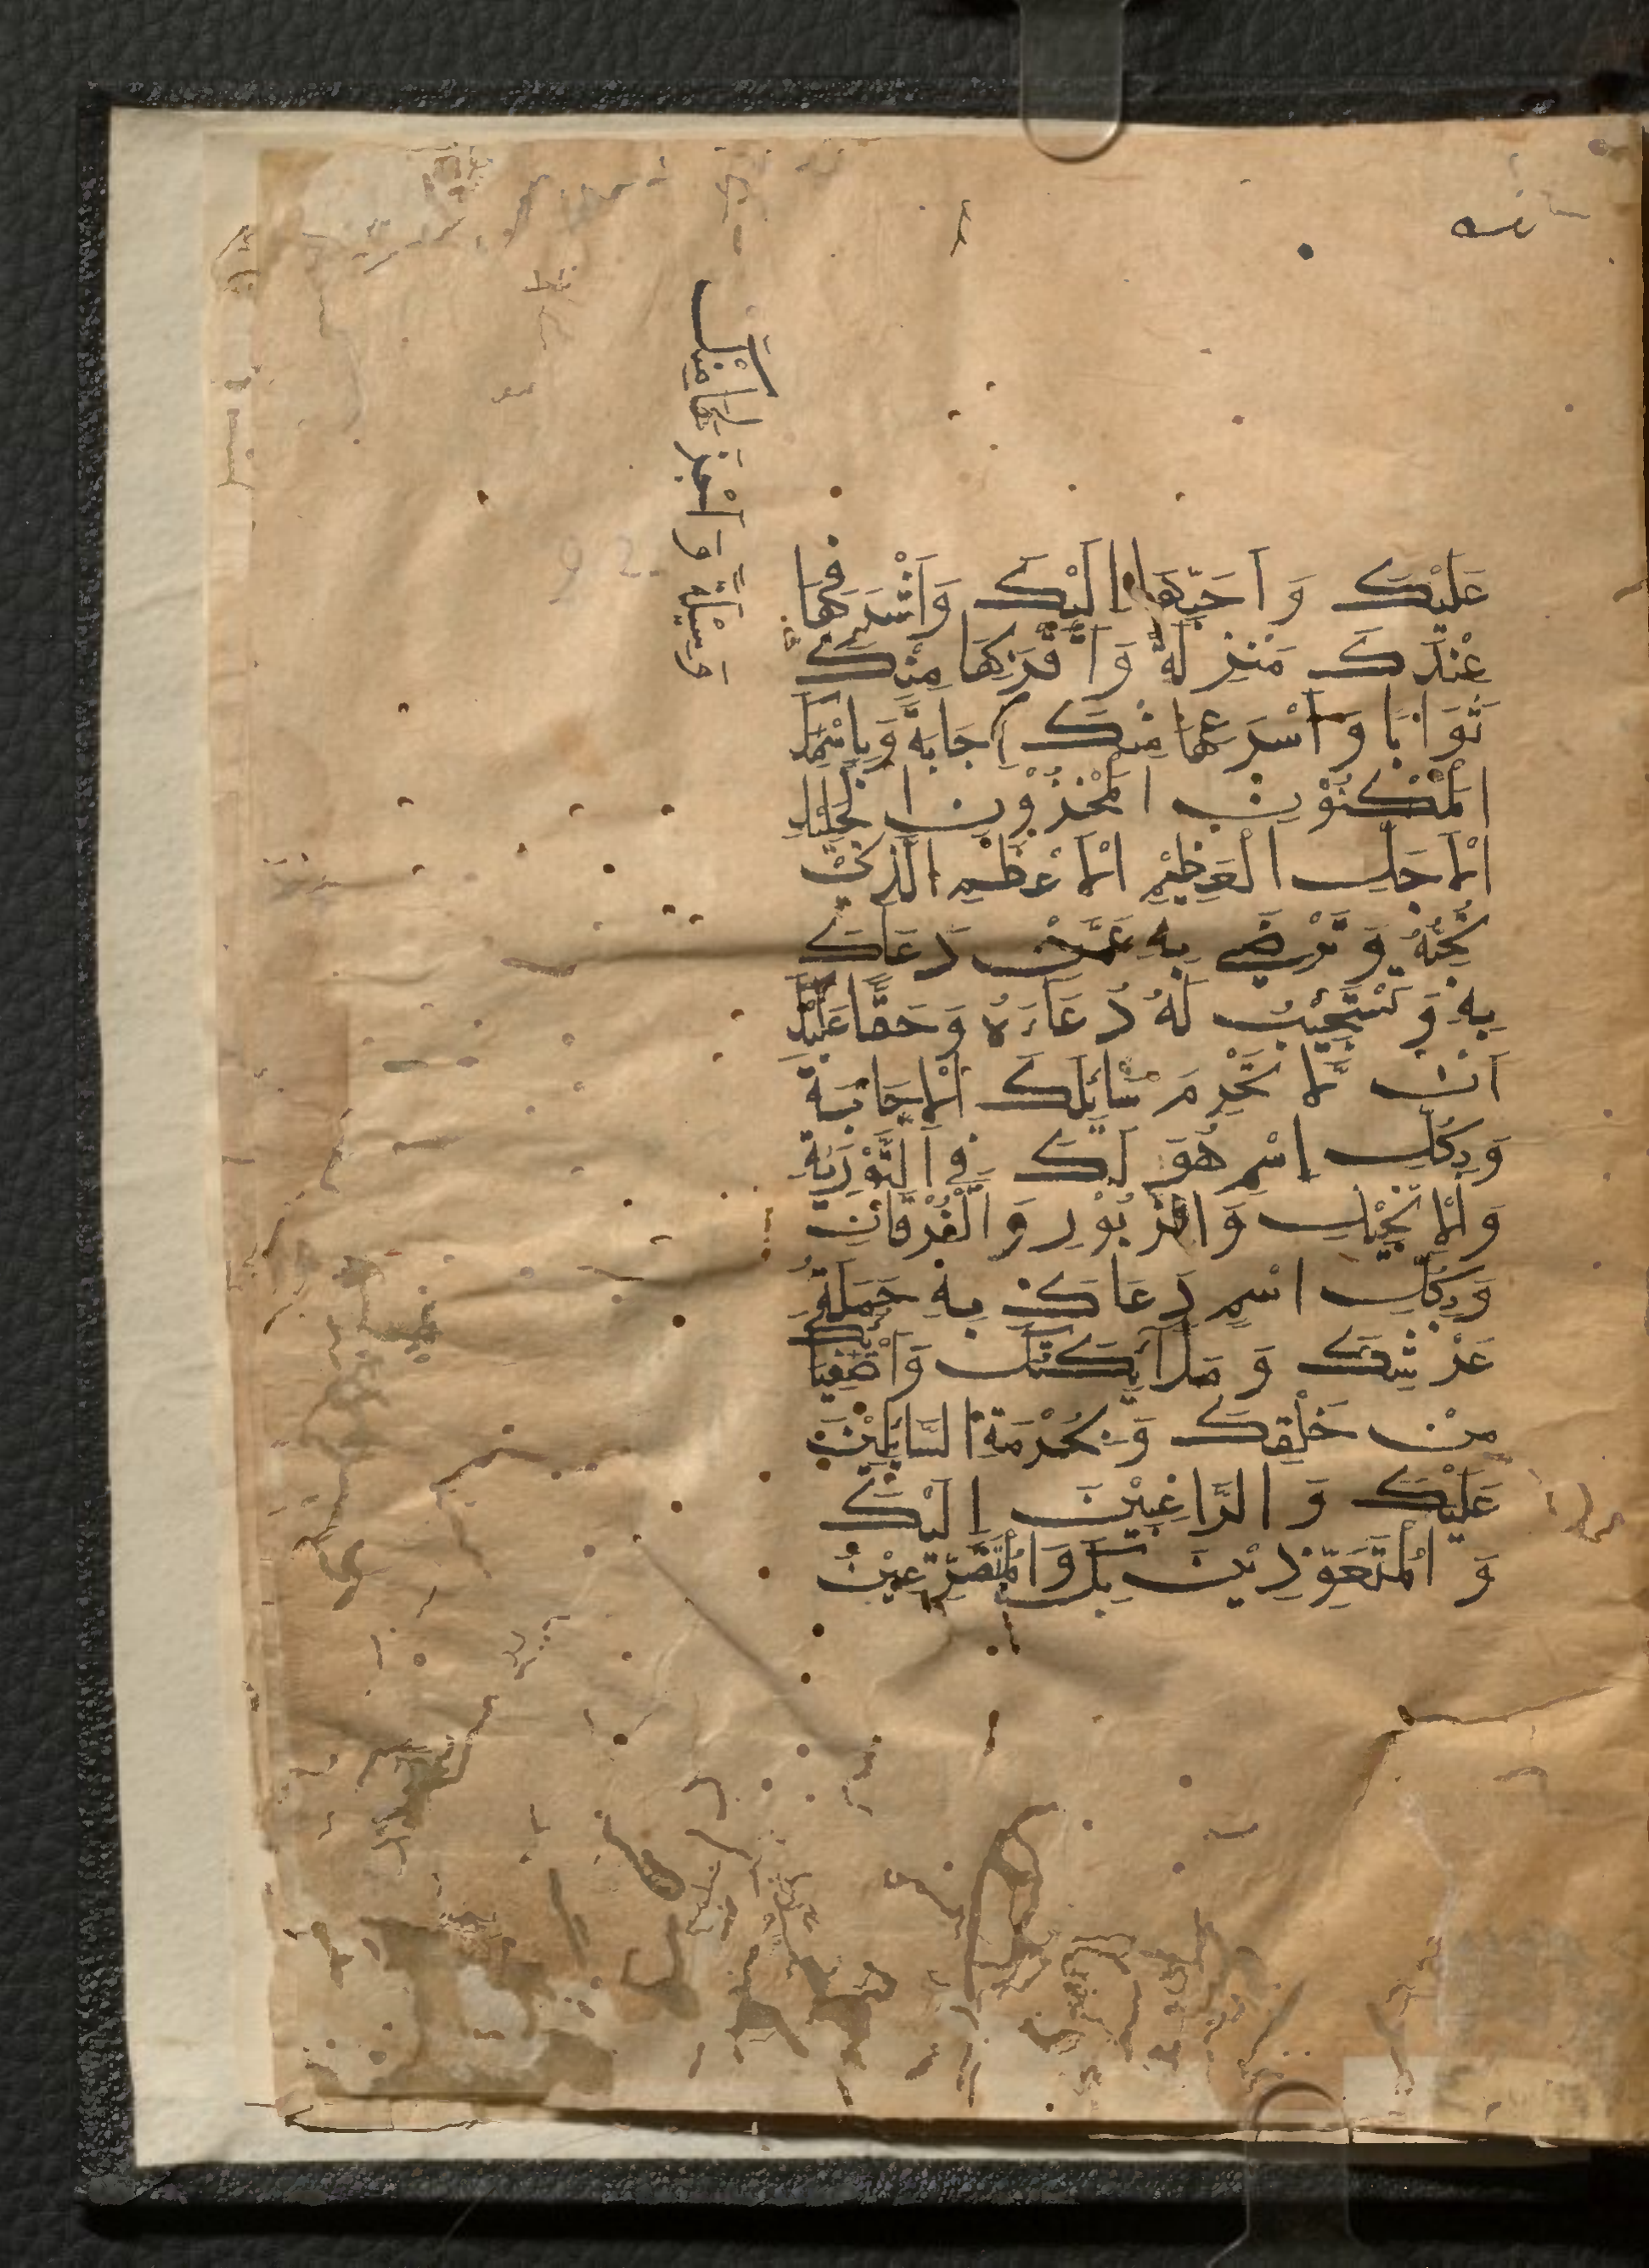 عَلَيْكَ وَاَحَبِّهَا اِلَيْكَ وَاَشْرَفِهَا
عِنْدَكَ مَنْزِلَةً وَاَقْرَبِهَا مِنْكَ
ثَوَابًا وَاَسْرَعِهَا مِنْكَ اِجَابَةً وَبِاسْمِكَ
الْمَكْنُوْنِ الْمَخْزُوْنِ الْجَلِيْلِ
الْاَجَلِّ الْعَظِيْمِ الْاَعْظَمِ الَّذِيْ
تُحِبُّهُ وَتَرْضٰي بِهِ عَمَّنْ دَعَاكَ
بِهِ وَتَسْتَجِيْبُ لَهُ دُعَاءَهُ وَحَقًّا عَلَيْكَ
اَنْ لَّا تَحْرِمَ سَائِلَكَ الْاِجَابَةَ
وَبِكُلِّ اِسْمٍ هُوَ لَكَ فِي التَّوْرٰيةِ
وَالْاِنْجِيْلِ وَالزَّبُوْرِ وَالْفُرْقَانِ
وَبِكُلِّ اسْمٍ دَعَاكَ بِهِ حَمَلَةُ
عَرْشِكَ وَمَلَآئِكَتُكَ وَاَصْفِيَائِكَ
مِنْ خَلْقِكَ وَبِحُرْمَةِ السَّائِلِيْنَ
عَلَيْكَ وَالرَّاغِبِيْنَ اِلَيْكَ
وَالْمُتَعَوِّذِيْنَ بِكَ وَالْمُتَضَرِّعِيْنَ
وَسِيْلَةً وَاَجْزَلِهَا مِنْكَ